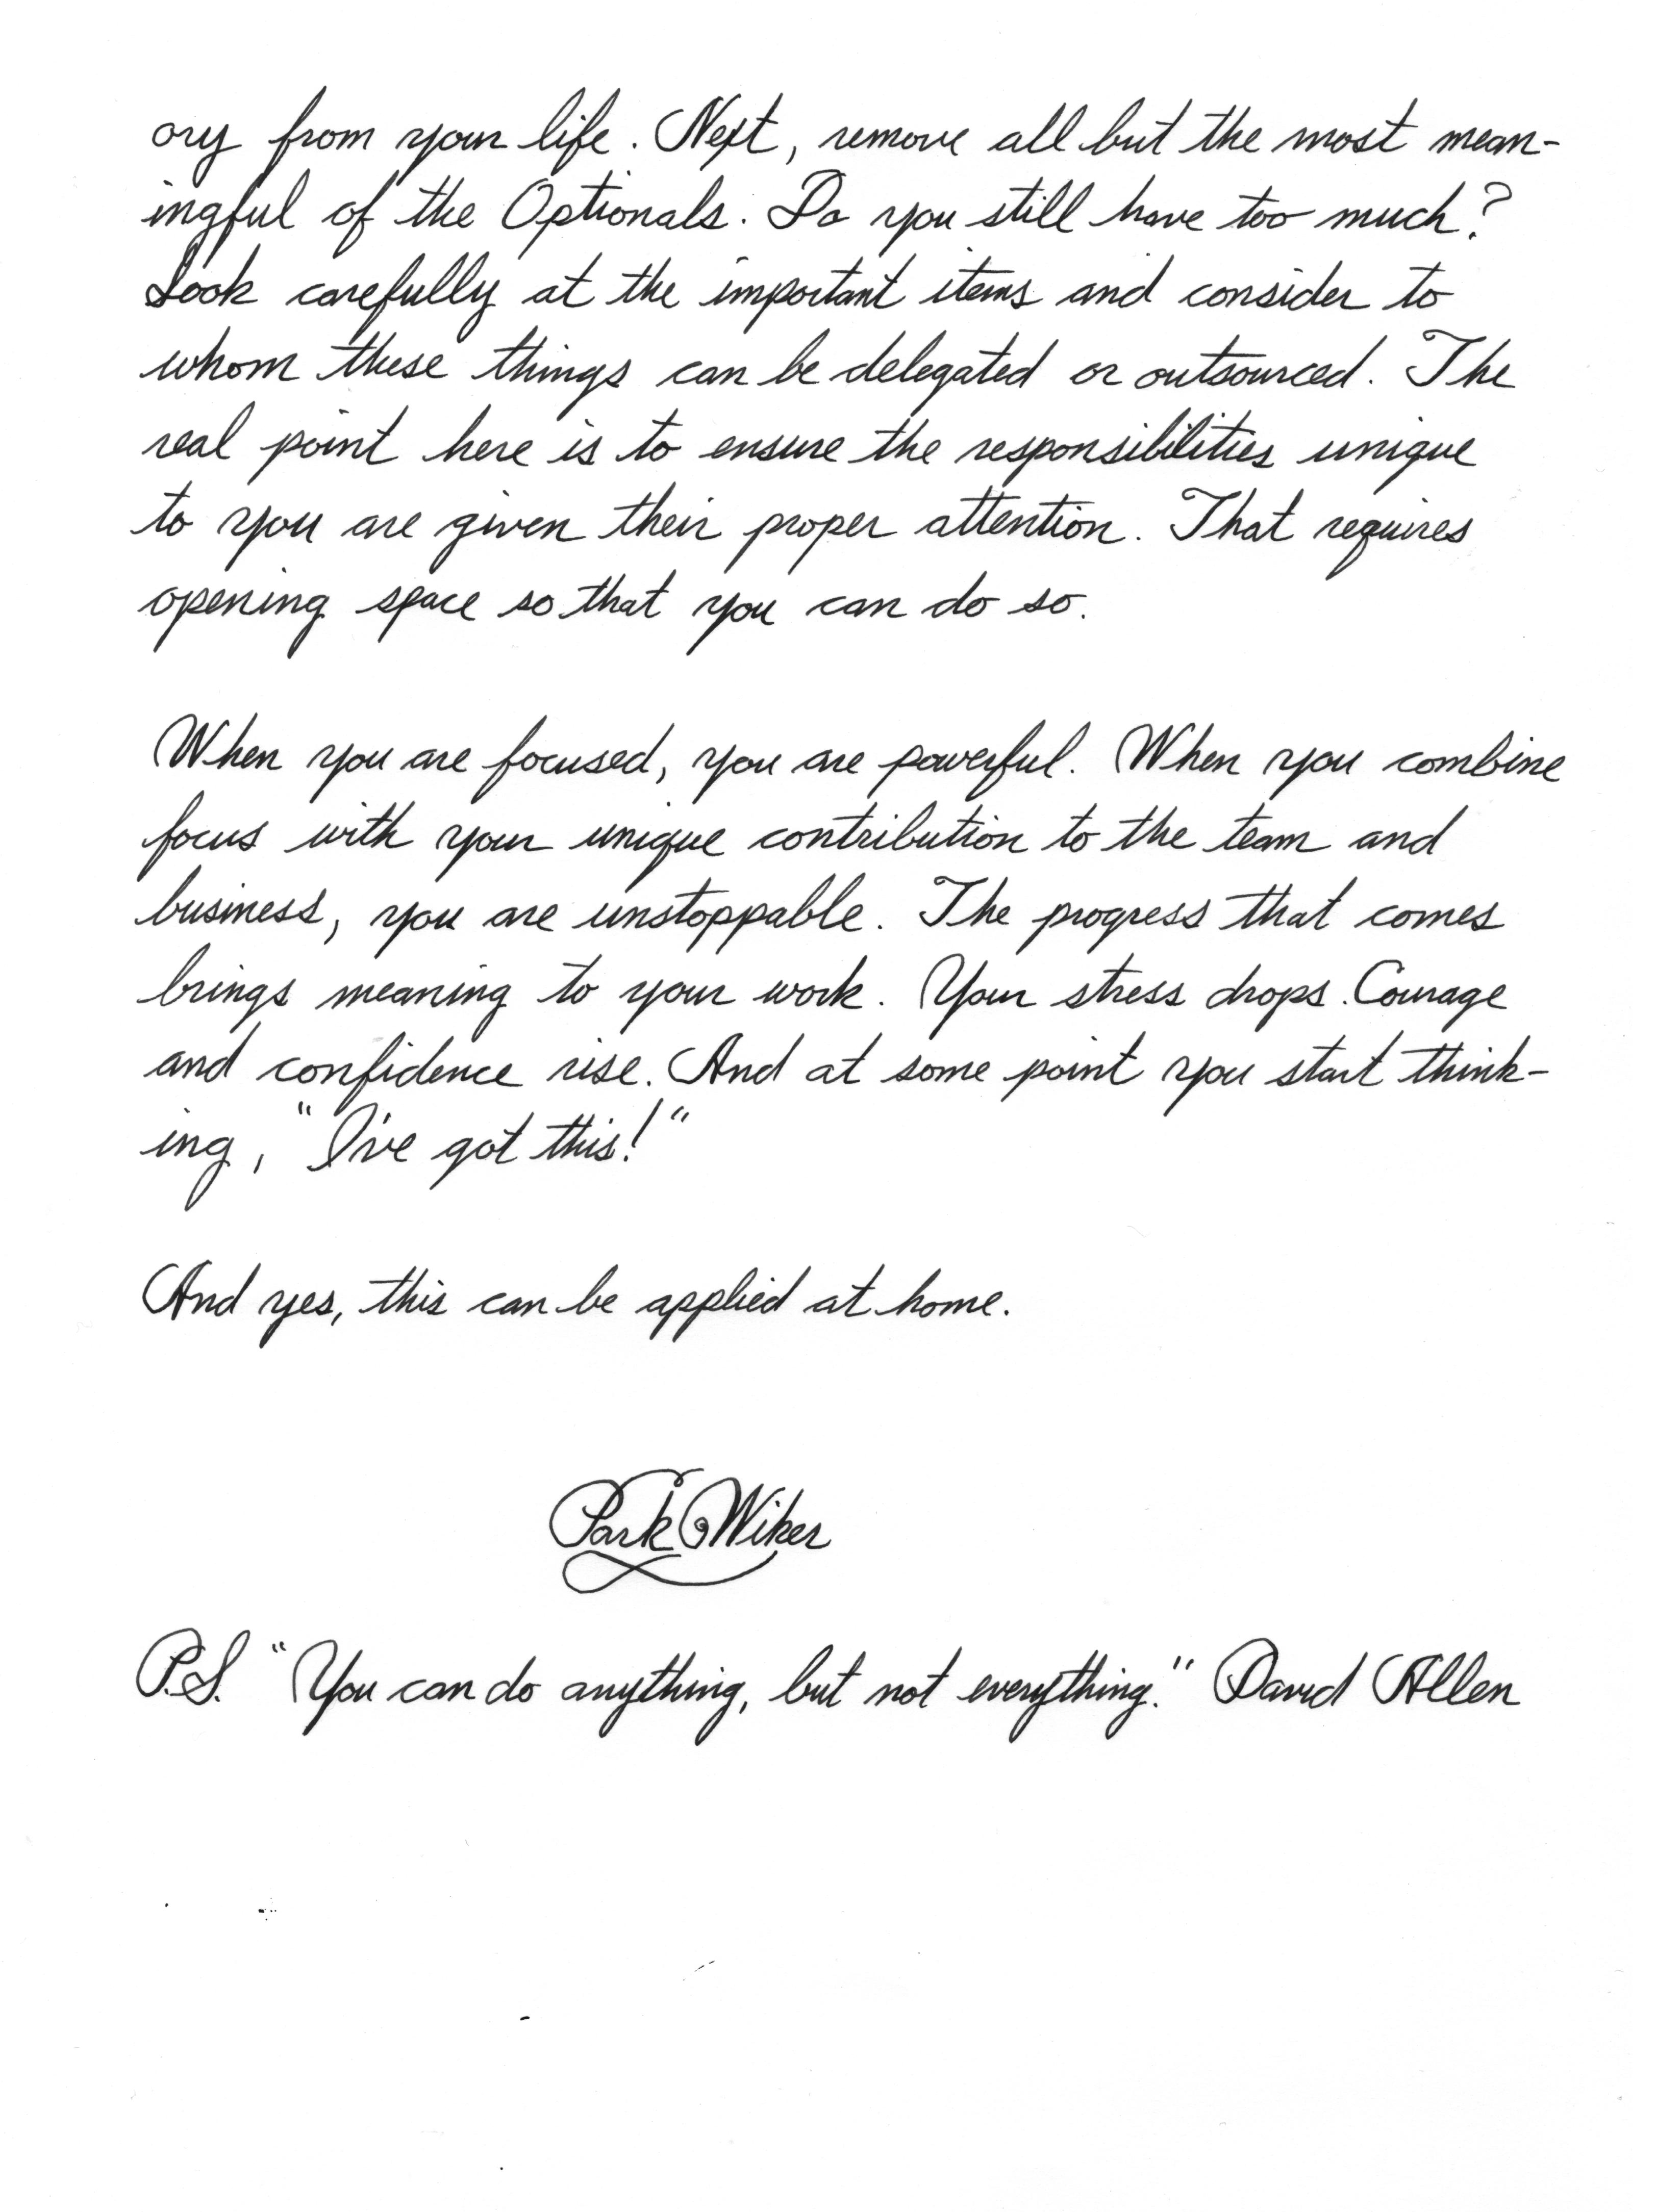 ory from your life. Next, remove all but the most mean-
ingful of the Optionals. Do you still have too much?
Look carefully at the important items and consider to
whom these things can be delegated or outsourced. The
real point here is to ensure the responsibilities unique
to you are given their proper attention. That requires
opening space so that you can do so.
When you are focused, you are powerful. When you combine
focus with your unique contribution to the team and
business, you are unstoppable. The progress that comes
brings meaning to your work. Your stress drops. Courage
and confidence rise. And at some point you start think-
ing, "I've got this!"
And yes, this can be applied at home.
Park Wiker
P.S. "You can do anything, but not everything." David Allen